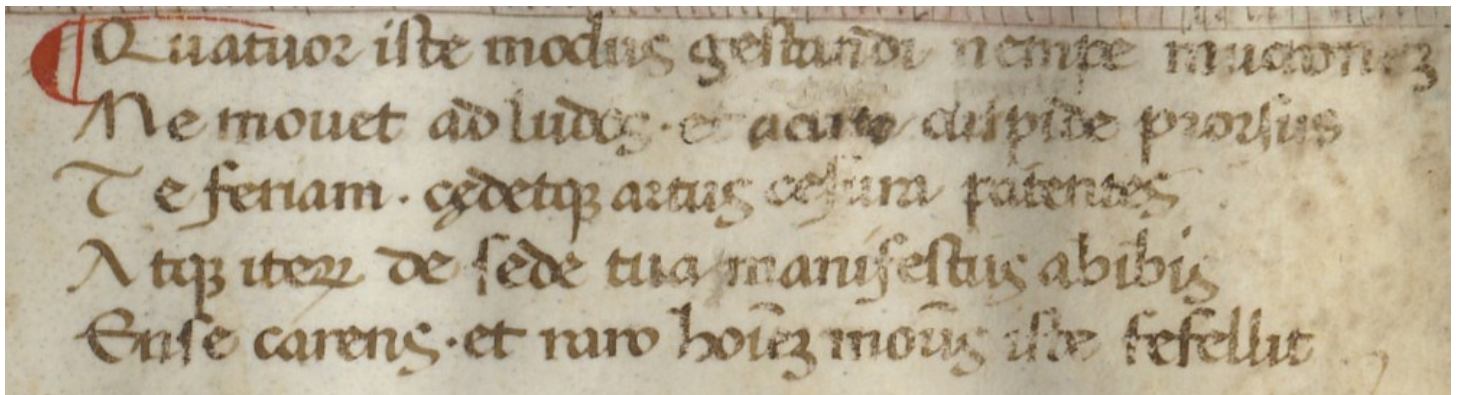 ¶ Quatuor iste modus gestandi nempe mucronez
Me mouet ad ludos · et acuto cuspide prorsus
Te feriam · cędetqꝫ artus cesura patentes
Atqꝫ iteꝝ de sede tua manifestus abibis
Ense carens · et raro hoīēz mot᷑us iste fefellit